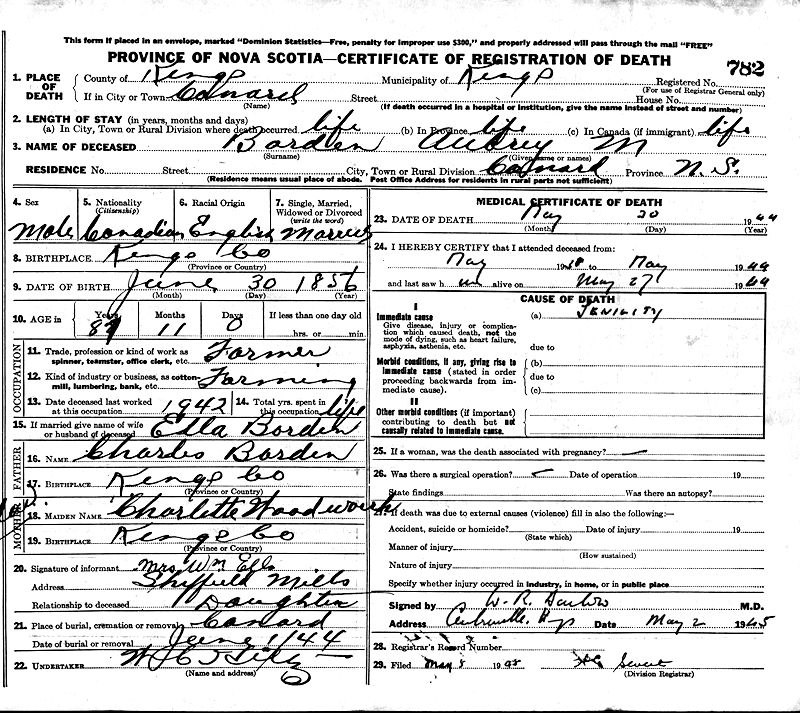 This form if placed in an envelope, marked "Dominion Statistics—Free, penalty for improper use $300," and properly addressed will pass through the mail "FREE"
PROVINCE OF NOVA SCOTIA—CERTIFICATE OF REGISTRATION OF DEATH
782
1. PLACE OF DEATH
County of Kings Municipality of Kings Registered No.
(For use of Registrar General only)
If in City or Town Canard Street House No.
(Name) (If death occurred in a hospital or institution, give the name instead of street and number)
2. LENGTH OF STAY (in years, months and days)
(a) In City, Town or Rural Division where death occurred life (b) In Province life (c) In Canada (if immigrant) life
3. NAME OF DECEASED Borden Aubrey M
(Surname) (Given name or names)
RESIDENCE No. Street City, Town or Rural Division Canard Province N.S.
(Residence means usual place of abode. Post Office Address for residents in rural parts not sufficient)
4. Sex Male
5. Nationality (Citizenship) Canadian
6. Racial Origin English
7. Single, Married, Widowed or Divorced (write the word) Married
8. BIRTHPLACE Kings Co
(Province or Country)
9. DATE OF BIRTH June 30 1856
(Month) (Day) (Year)
10. AGE in Years 87 Months 11 Days 0 If less than one day old
hrs. or min.
OCCUPATION
11. Trade, profession or kind of work as spinner, teamster, office clerk, etc. Farmer
12. Kind of industry or business, as cotton-mill, lumbering, bank, etc. Farming
13. Date deceased last worked at this occupation 1942 14. Total yrs. spent in this occupation life
15. If married give name of wife or husband of deceased Ella Borden
FATHER
16. NAME Charles Borden
17. BIRTHPLACE Kings Co
(Province or Country)
MOTHER
18. MAIDEN NAME Charlotte Woodworth
19. BIRTHPLACE Kings Co
(Province or Country)
20. Signature of informant Mrs Wm Ells
Address Sheffield Mills
Relationship to deceased Daughter
21. Place of burial, cremation or removal Canard
Date of burial or removal June 1/44
22. UNDERTAKER
(Name and address)
MEDICAL CERTIFICATE OF DEATH
23. DATE OF DEATH May 30 1944
(Month) (Day) (Year)
24. I HEREBY CERTIFY that I attended deceased from:
May 19 to May 1944
and last saw h im alive on May 27 1944
CAUSE OF DEATH
I
Immediate cause (a) SENILITY
Give disease, injury or complication which caused death, not the mode of dying, such as heart failure, asphyxia, asthenia, etc.
due to
Morbid conditions, if any, giving rise to immediate cause (stated in order proceeding backwards from immediate cause).
(b)
due to
(c)
II
Other morbid conditions (if important) contributing to death but not causally related to immediate cause.
25. If a woman, was the death associated with pregnancy?
26. Was there a surgical operation? Date of operation 19
State findings Was there an autopsy?
27. If death was due to external causes (violence) fill in also the following:—
Accident, suicide or homicide? Date of injury 19
(State which)
Manner of injury
(How sustained)
Nature of injury
Specify whether injury occurred in industry, in home, or in public place
Signed by W. R. M.D.
Address Date May 2 1945
28. Registrar's Record Number
29. Filed May 8 19
(Division Registrar)